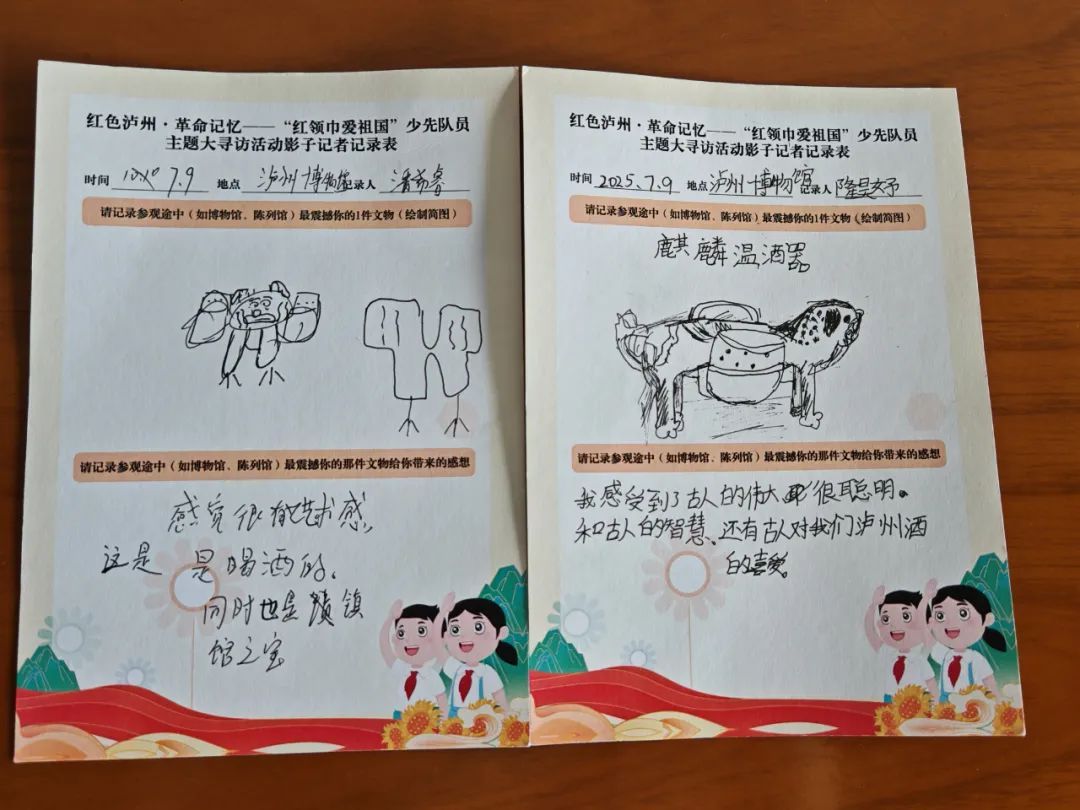 红色泸州·革命记忆——“红领巾爱祖国”少先队员
主题大寻访活动影子记者记录表
时间 7.9 地点 泸州博物馆 记录人 潘
请记录参观途中（如博物馆、陈列馆）最震撼你的1件文物（绘制简图）
请记录参观途中（如博物馆、陈列馆）最震撼你的那件文物给你带来的感想
感觉很有艺术感，
这是 是喝酒的、
同时也是 镇
馆之宝
红色泸州·革命记忆——“红领巾爱祖国”少先队员
主题大寻访活动影子记者记录表
时间 2025.7.9 地点 泸州博物馆 记录人 隆昊
请记录参观途中（如博物馆、陈列馆）最震撼你的1件文物（绘制简图）
麒麟温酒器
请记录参观途中（如博物馆、陈列馆）最震撼你的那件文物给你带来的感想
我感受到了古人的伟大 很聪明。
和古人的智慧、还有古人对我们泸州酒
的喜爱。